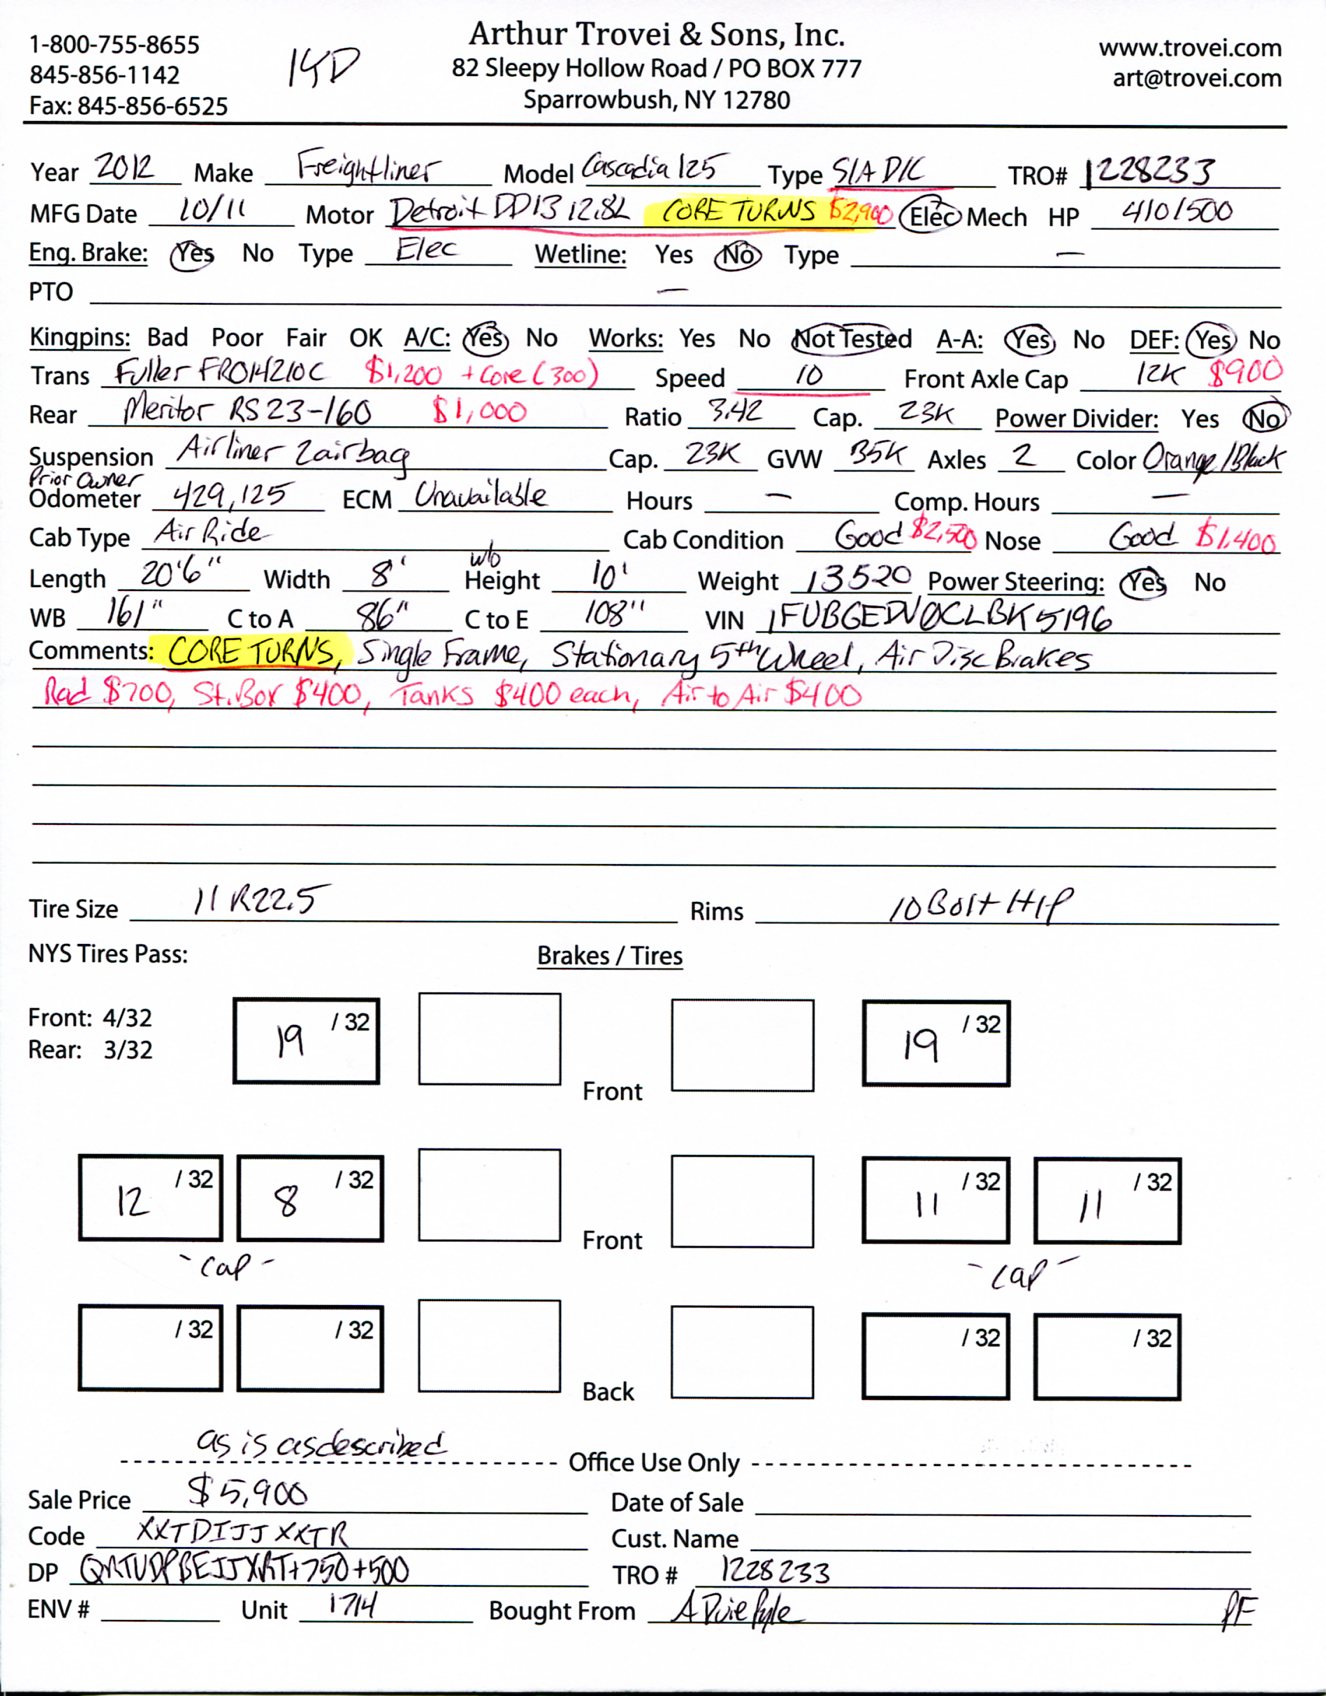 1-800-755-8655
845-856-1142
Fax: 845-856-6525
Arthur Trovei & Sons, Inc.
82 Sleepy Hollow Road / PO BOX 777
Sparrowbush, NY 12780
www.trovei.com
art@trovei.com
Year 2012 Make Freightliner Model Cascadia 125 Type S/A D/C TRO# 1228233
MFG Date 10/11 Motor Detroit DD13 12.8L CORE TURNS $2,900 Elec Mech HP 410/500
Eng. Brake: Yes No Type Elec Wetline: Yes No Type —
PTO —
Kingpins: Bad Poor Fair OK A/C: Yes No Works: Yes No Not Tested A-A: Yes No DEF: Yes No
Trans Fuller FRO14210C $1,200 + Core (300) Speed 10 Front Axle Cap 12K $900
Rear Meritor RS23-160 $1,000 Ratio 3.42 Cap. 23K Power Divider: Yes No
Suspension Airliner 2airbag Cap. 23K GVW 35K Axles 2 Color Orange/Black
Prior Owner
Odometer 429,125 ECM Unavailable Hours — Comp. Hours —
Cab Type Air Ride Cab Condition Good $2,500 Nose Good $1,400
Length 20'6" Width 8' w/o Height 10' Weight 13520 Power Steering: Yes No
WB 161" C to A 86" C to E 108" VIN 1FUBGEDV0CLBK5196
Comments: CORE TURNS, Single Frame, Stationary 5th Wheel, Air Disc Brakes
Rad $700, St. Box $400, Tanks $400 each, Air to Air $400
Tire Size 11R22.5 Rims 10 Bolt H/P
NYS Tires Pass: Brakes / Tires
Front: 4/32
Rear: 3/32
19 /32 19 /32
Front
12 /32 8 /32 11 /32 11 /32
Front
-Cap- -Cap-
/32 /32 /32 /32
Back
as is as described
Office Use Only
Sale Price $5,900 Date of Sale
Code XXTDIJJXXTR Cust. Name
DP +750+500 TRO # 1228233
ENV # Unit 1714 Bought From A Duie Pyle PF